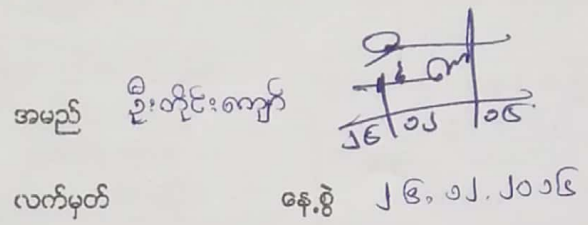 အမည် ဦးတိုင်းကျော်
၂၆ ၁၂ ၁၆
လက်မှတ် နေ့စွဲ ၂၆.၁၂.၂၀၁၆